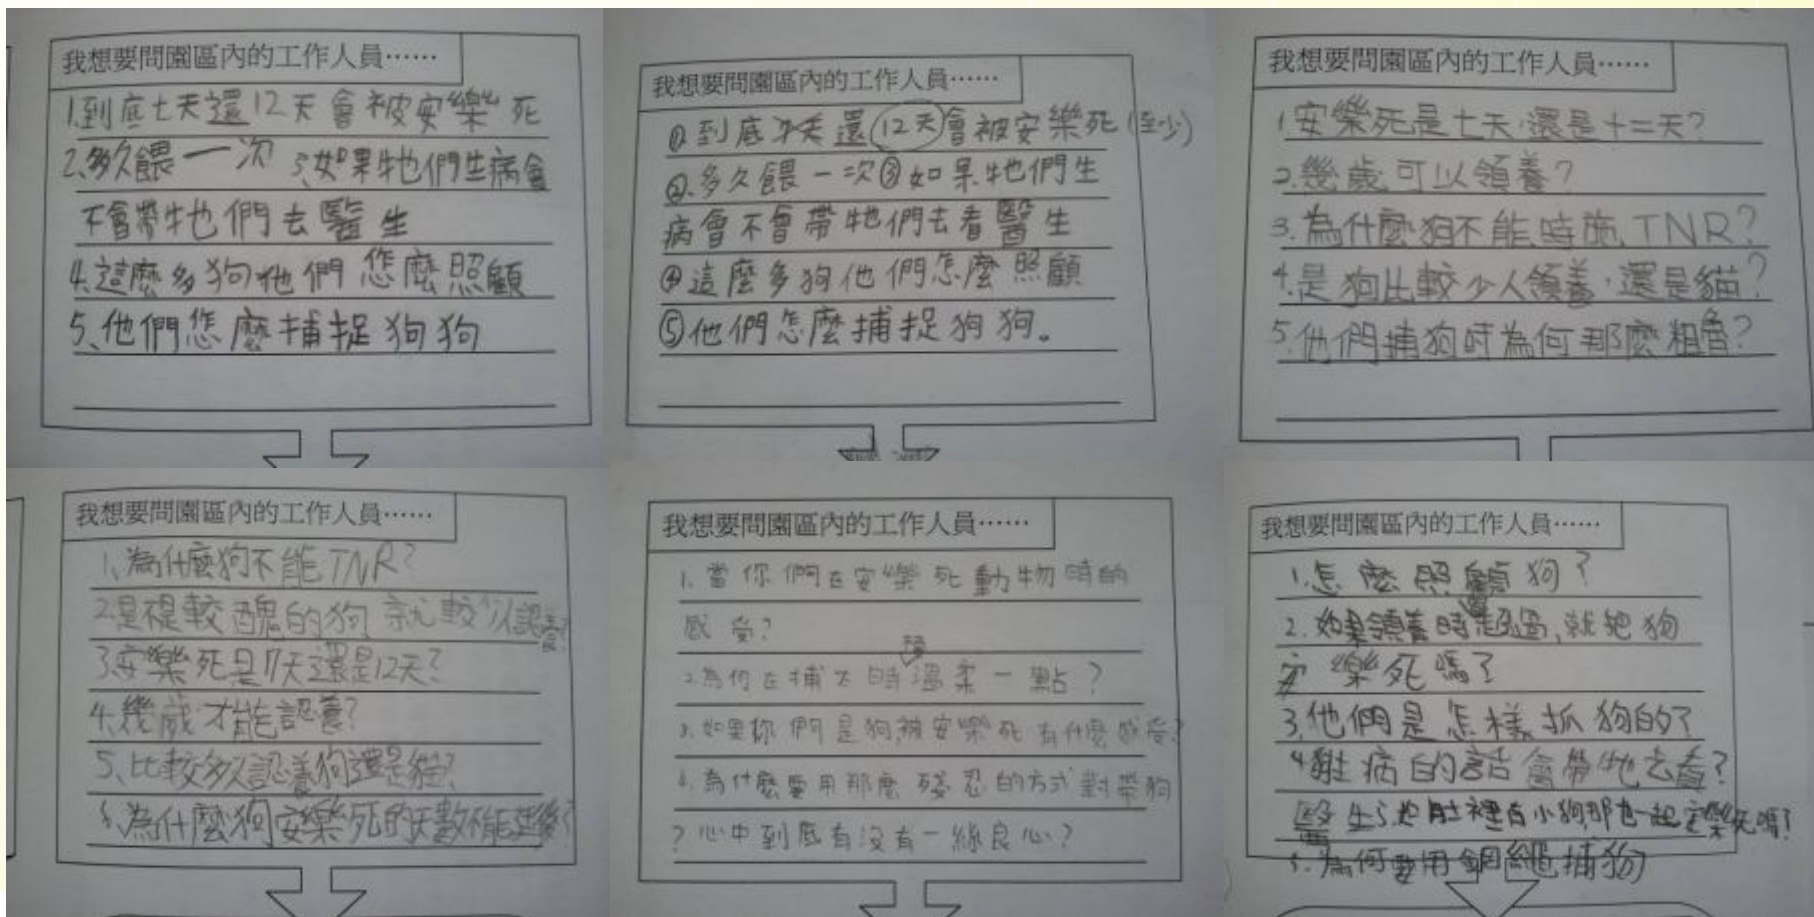 我想要問園區內的工作人員……
1.到底七天還12天會被安樂死
2.多久餵一次 3.如果牠們生病會
不會帶牠們去醫生
4.這麼多狗他們怎麼照顧
5.他們怎麼捕捉狗狗
我想要問園區內的工作人員……
①到底 天還12天會被安樂死(至少)
②.多久餵一次③如果牠們生
病會不會帶牠們去看醫生
④這麼多狗他們怎麼照顧
⑤他們怎麼捕捉狗狗。
我想要問園區內的工作人員……
1.安樂死是七天,還是十二天?
2.幾歲可以領養?
3.為什麼狗不能時施TNR?
4.是狗比較少人領養,還是貓?
5.他們捕狗時為何那麼粗魯?
我想要問園區內的工作人員……
1、為什麼狗不能TNR?
2.是不是較醜的狗就較少人認養?
3.安樂死是7天還是12天?
4.幾歲才能認養?
5、比較多人認養狗還是貓?
6、為什麼狗安樂死的天數不能延後?
我想要問園區內的工作人員……
1.當你們在安樂死動物時的
感受?
2.為何在捕犬時 溫柔一點?
3.如果你們是狗,被安樂死有什麼感受?
4.為什麼要用那麼殘忍的方式對帶狗
?心中到底有沒有一絲良心?
我想要問園區內的工作人員……
1.怎麼照顧狗?
2.如果領養時 超過,就把狗
安樂死嗎?
3.他們是怎樣抓狗的?
4 生病的話會帶牠去看?
醫生5. 肚裡有小狗,那也一起安樂死嗎?
為何要用鋼繩捕狗